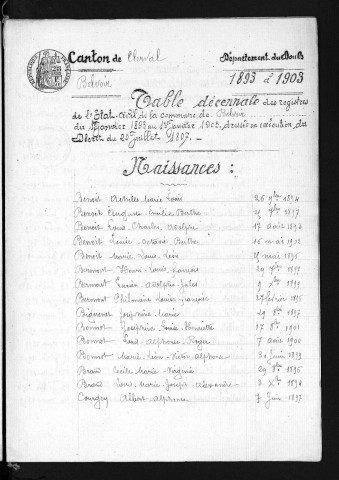 Canton de Clerval Département du Doubs
Belvoir 1893 à 1903
Table décennale des registres
de l'Etat-civil de la commune de Belvoir
du 1er Janvier 1893 au 1er Janvier 1903, dressée en exécution du
Décret du 20 Juillet 1807. —
Naissances :
Benoit Marie Louis 26 9bre 1894
Benoit Emilie Berthe 1897
Benoit Louis Charles Adolphe 17 août 1894
Benoit Berthe 16 mai 1902
Benoit Marie Louis Léon mai 1896
Bermont Henri Louis 29 1899
Bermont Lucien Adolphe Jules 9 Xbre 1899
Bermont Philomène Louise 27 février 1895
Joséphine Marie 29 1897
Bonnot Joséphine Louise Henriette 17 1901
Bonnot Louis Alphonse Roger 7 août 1900
Bonnot Marie Léon Alphonse 30 Juin 1899
Cécile Marie Virginie 29 1896
Louis Marie Joseph Alexandre 8 Xbre 1894
Courgey Albert Alphonse 7 Juin 1897